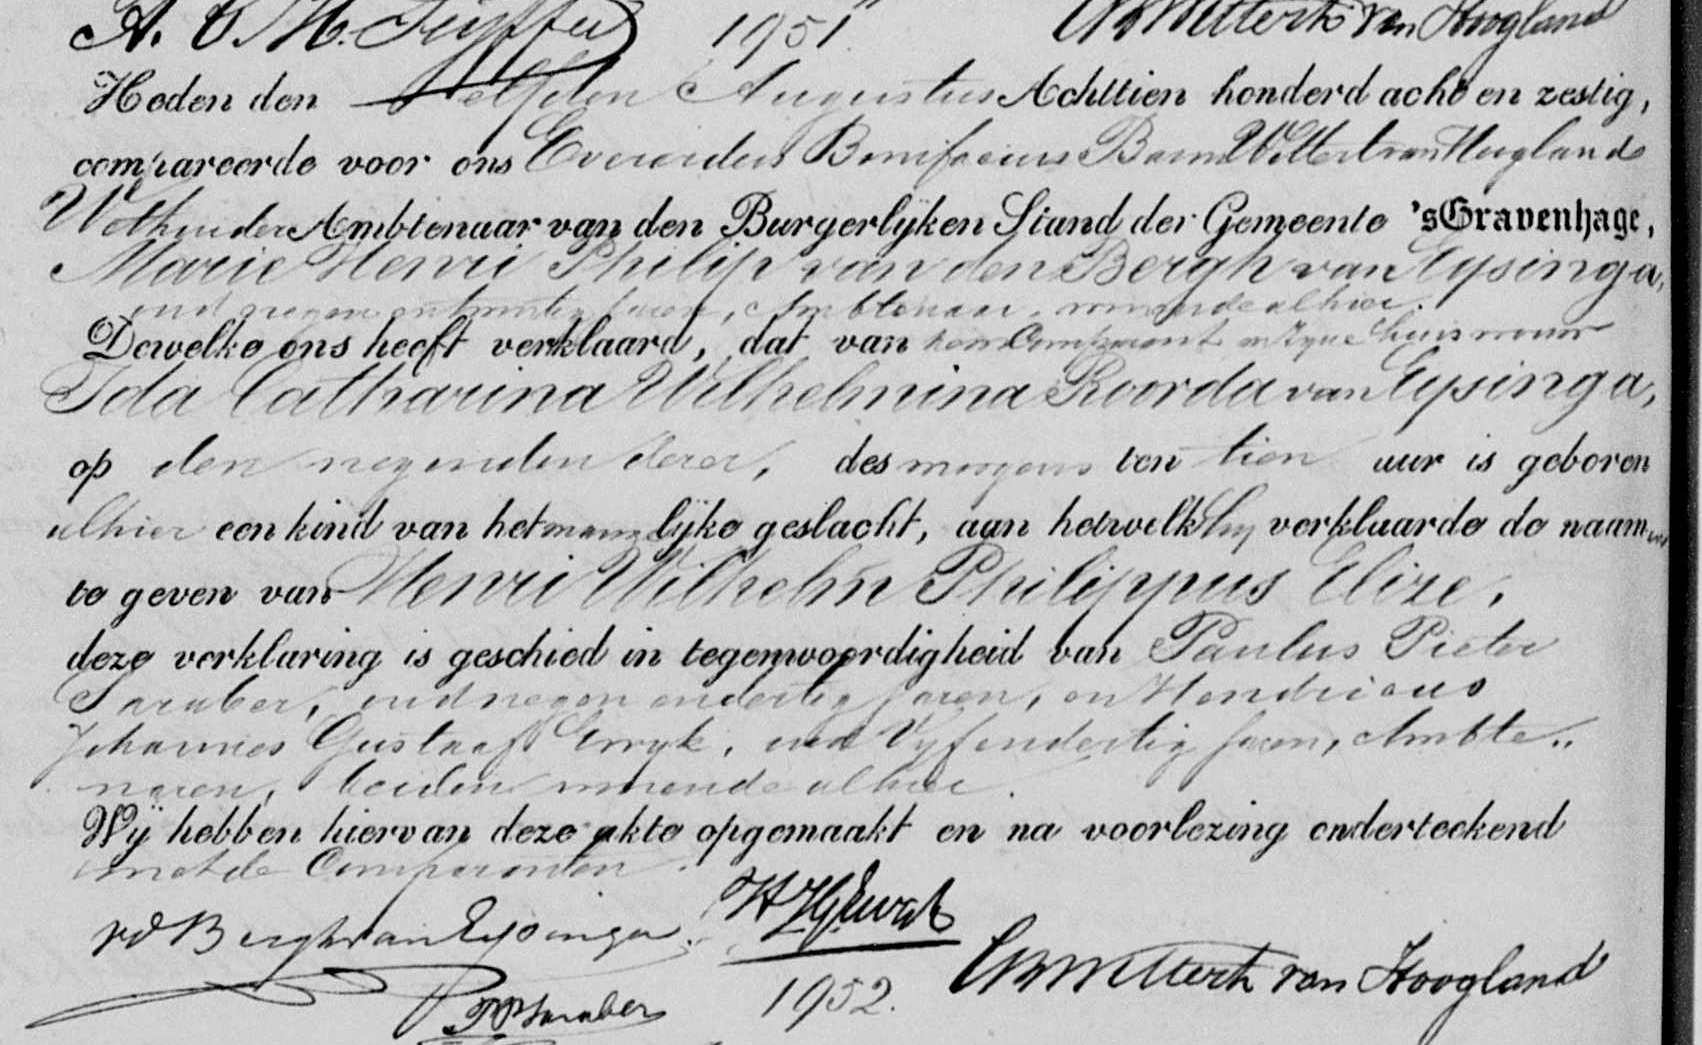 A. C. M.
1951.
van Hoogland
Heden den elfden Augustus Achttien honderd acht en zestig,
compareerde voor ons Everardus Bonifacius Baron Wittert van Hoogland
Wethouder Ambtenaar van den Burgerlijken Stand der Gemeente 'sGravenhage,
Marie Henri Philip van den Bergh van Eysinga,
oud negen en twintig jaren, Ambtenaar, wonende alhier.
Dewelke ons heeft verklaard, dat van hem Comparant en zyne huisvrouw
Ida Catharina Wilhelmina Roorda van Eysinga,
op den negenden dezer, des morgens ten tien uur is geboren
alhier een kind van het mannelijke geslacht, aan hetwelk hy verklaarde de naamen
te geven van Henri Wilhelm Philippus Elize.
deze verklaring is geschied in tegenwoordigheid van Paulus Pieter
Saraber, oud negen en dertig jaren, en Hendricus
Johannes Gustaaf Ewyk, oud Vyf en dertig jaren, Ambte„
naren, beiden wonende alhier.
Wij hebben hiervan deze akte opgemaakt en na voorlezing onderteekend
met de Comparanten.
vd Bergh van Eysinga.
PP Saraber
1952.
EB Wittert van Hoogland